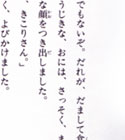 でもないぞ。だれが、だまして食
うじきな、おには、さっそく、ま
な顔をつき出しました。
、きこりさん。」
く、よびかけました。